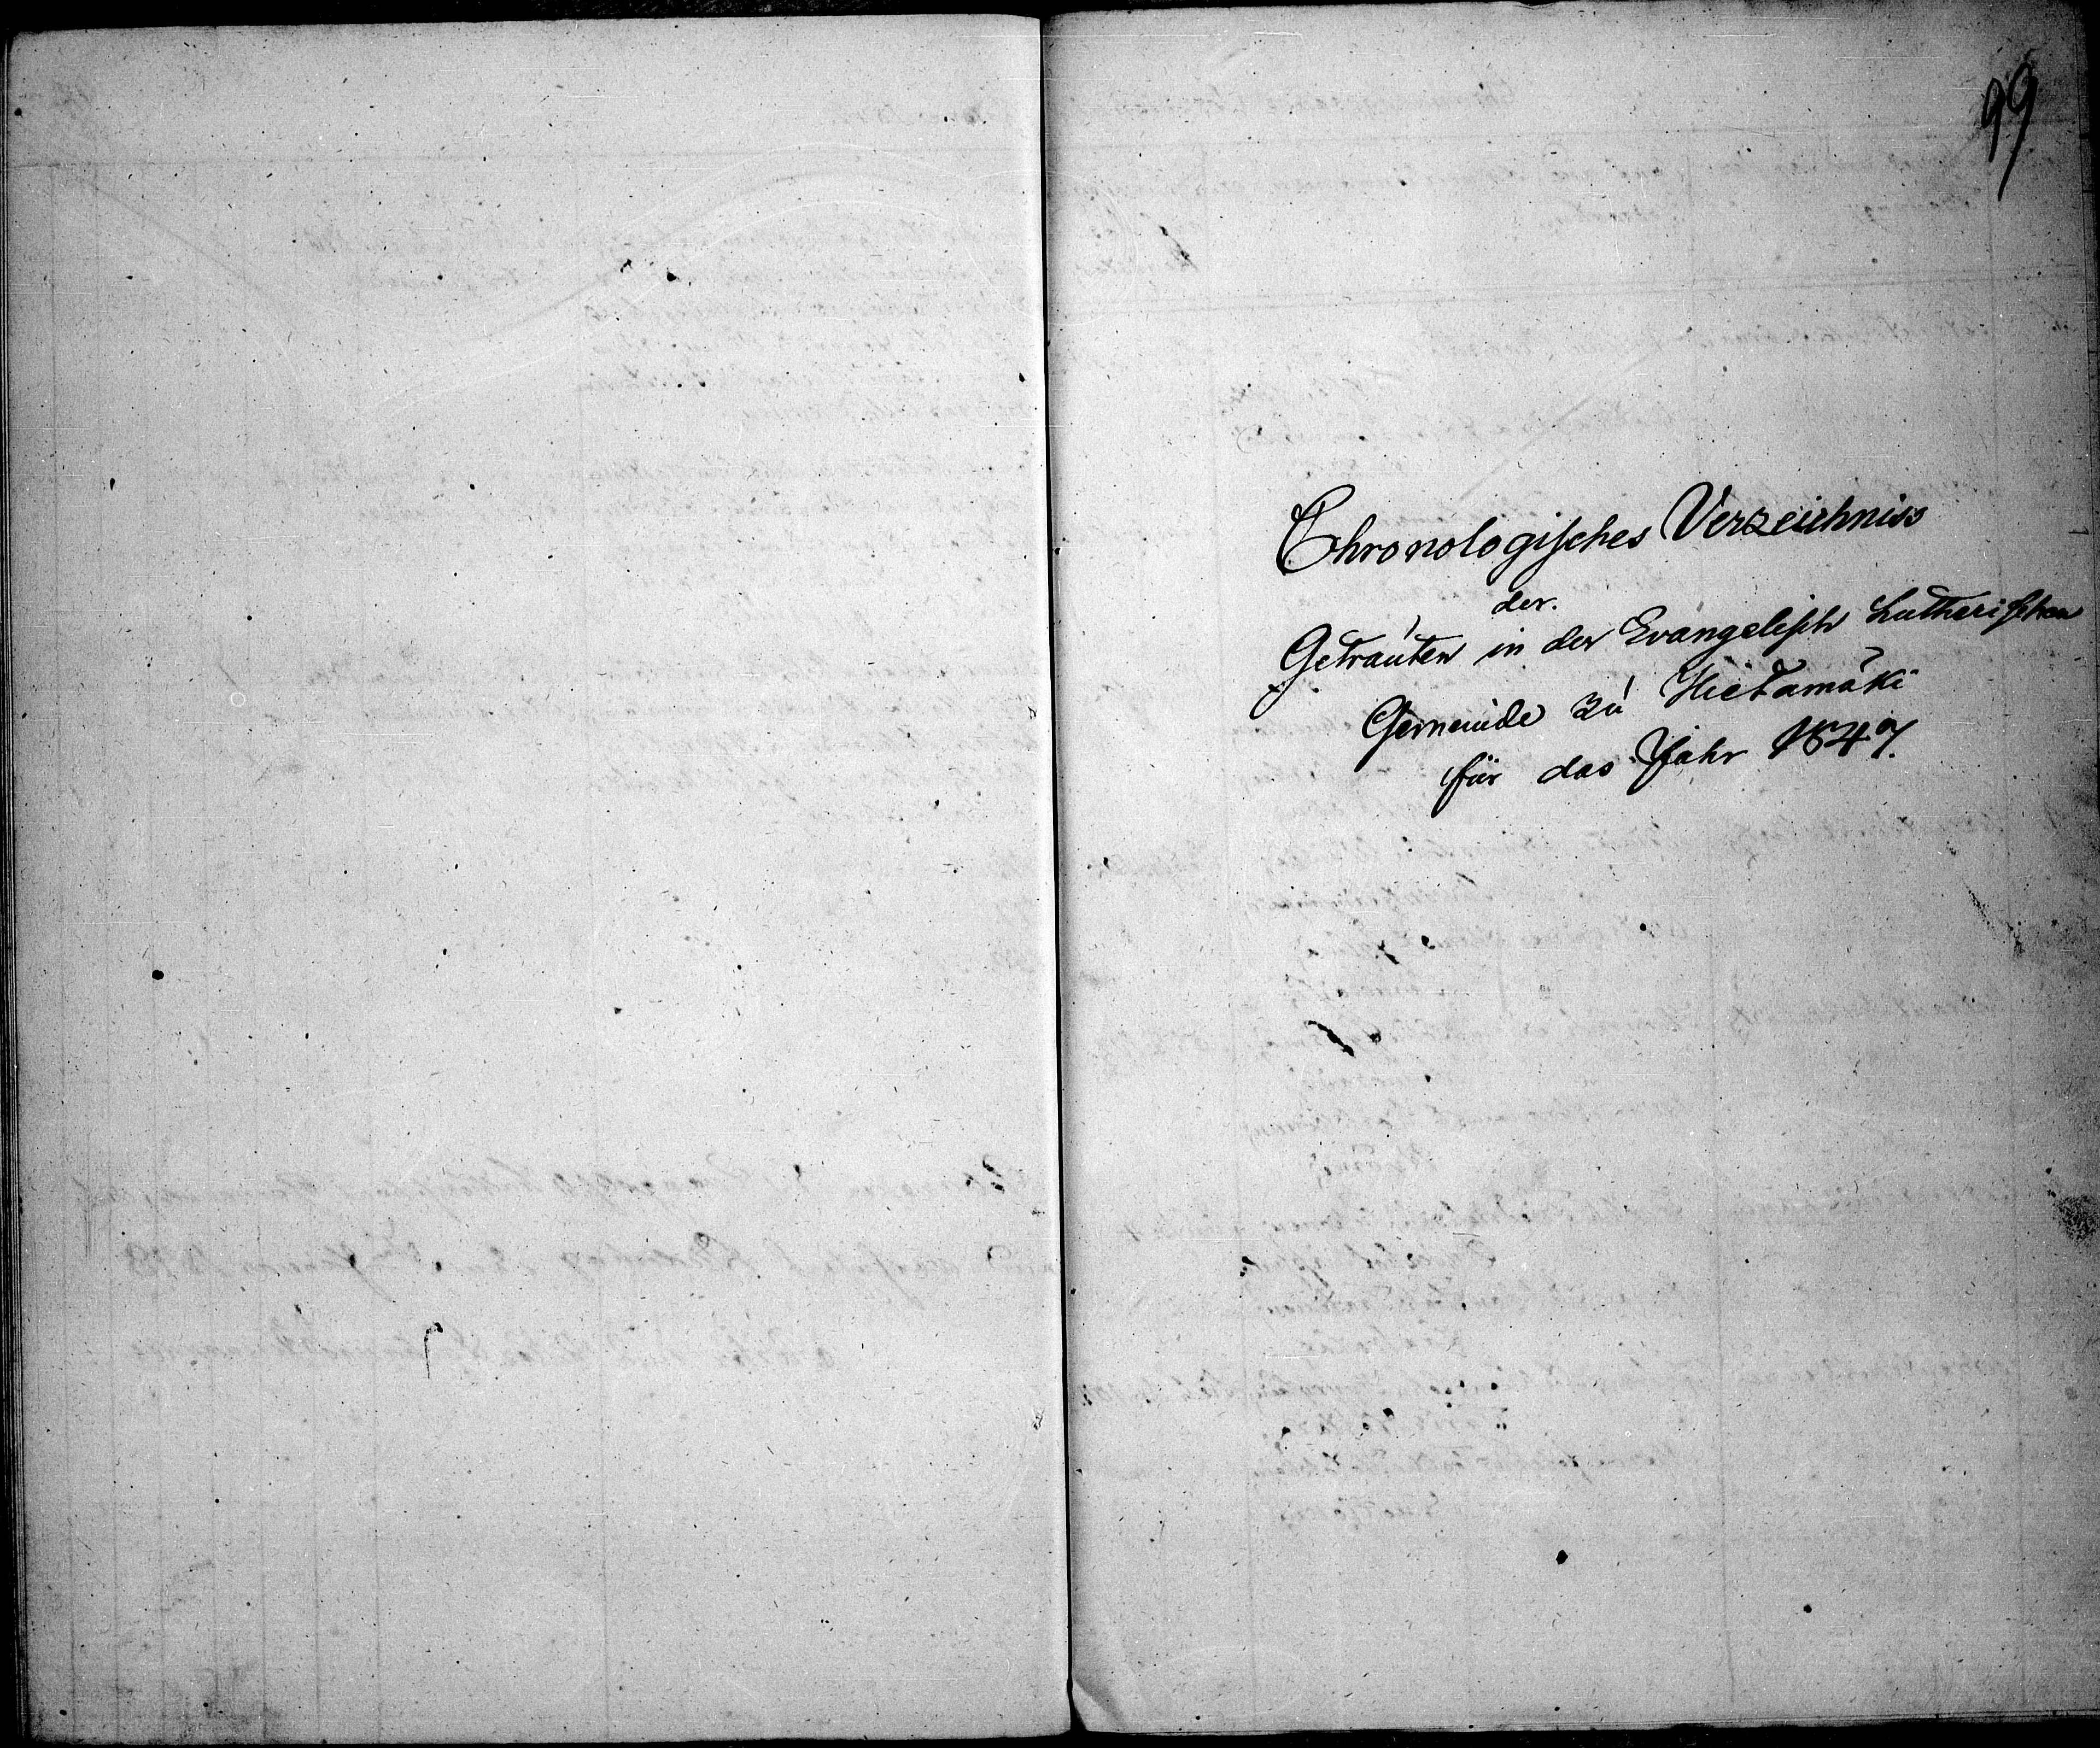 99
Chronologisches Verzeichniss
der
Getrauten in der Evangelisch Lutherischen
Gemeinde zu Hietamäki
für das Jahr 1847.